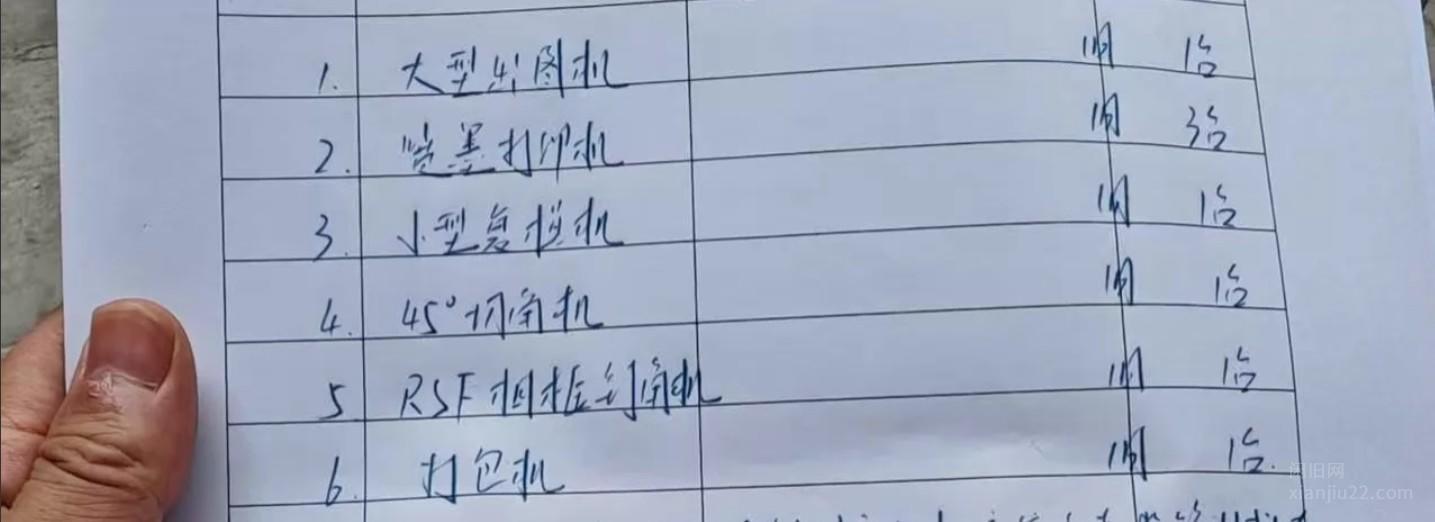 1. 大型出图机 旧 1台
2. 喷墨打印机 旧 3台
3. 小型复模机 旧 1台
4. 45°切角机 旧 1台
5 RSF相框钉角机 旧 1台
6. 打包机 旧 1台.
闲旧网
xianjiu22.com